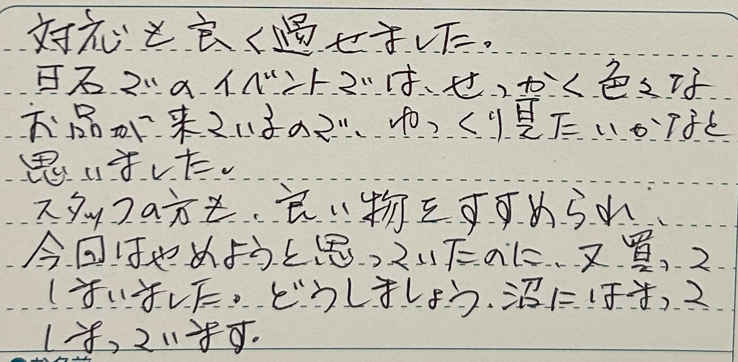 対応も良く過せました。
日石でのイベントでは、せっかく色々な
お品が来ているので、ゆっくり見たいかなと
思いました。
スタッフの方も、良い物をすすめられ、
今回はやめようと思っていたのに、又買って
しまいました。どうしましょう、沼にはまって
しまっています。